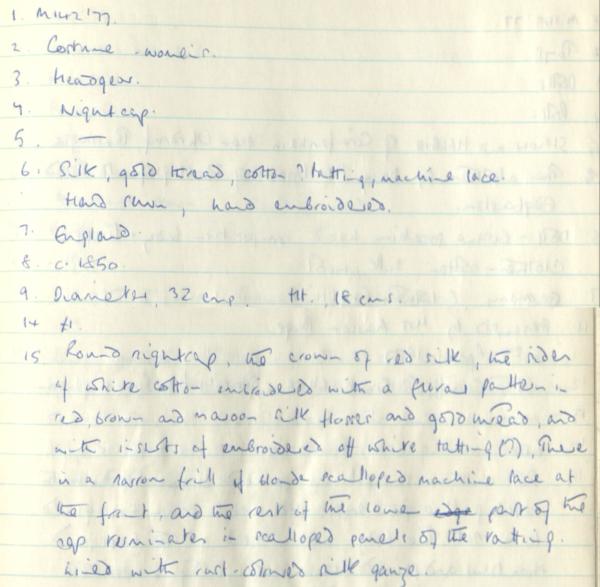 1. M142'77.
2. Costume - women's.
3. Headgear.
4. Nightcap.
5. —
6. Silk, gold thread, cotton ? tatting, machine lace.
Hand sewn, hand embroidered.
7. England.
8. c. 1850.
9. Diameter, 32 cms. Ht., 18 cms.
14 £1.
15. Round nightcap, the crown of red silk, the sides
of white cotton embroidered with a floral pattern in
red, brown and maroon silk flosses and gold thread, and
with insets of embroidered off white tatting (?). There
is a narrow frill of blonde scalloped machine lace at
the front, and the rest of the lower edge part of the
cap terminates in scalloped panels of the tatting.
Lined with rust-coloured silk gauze.